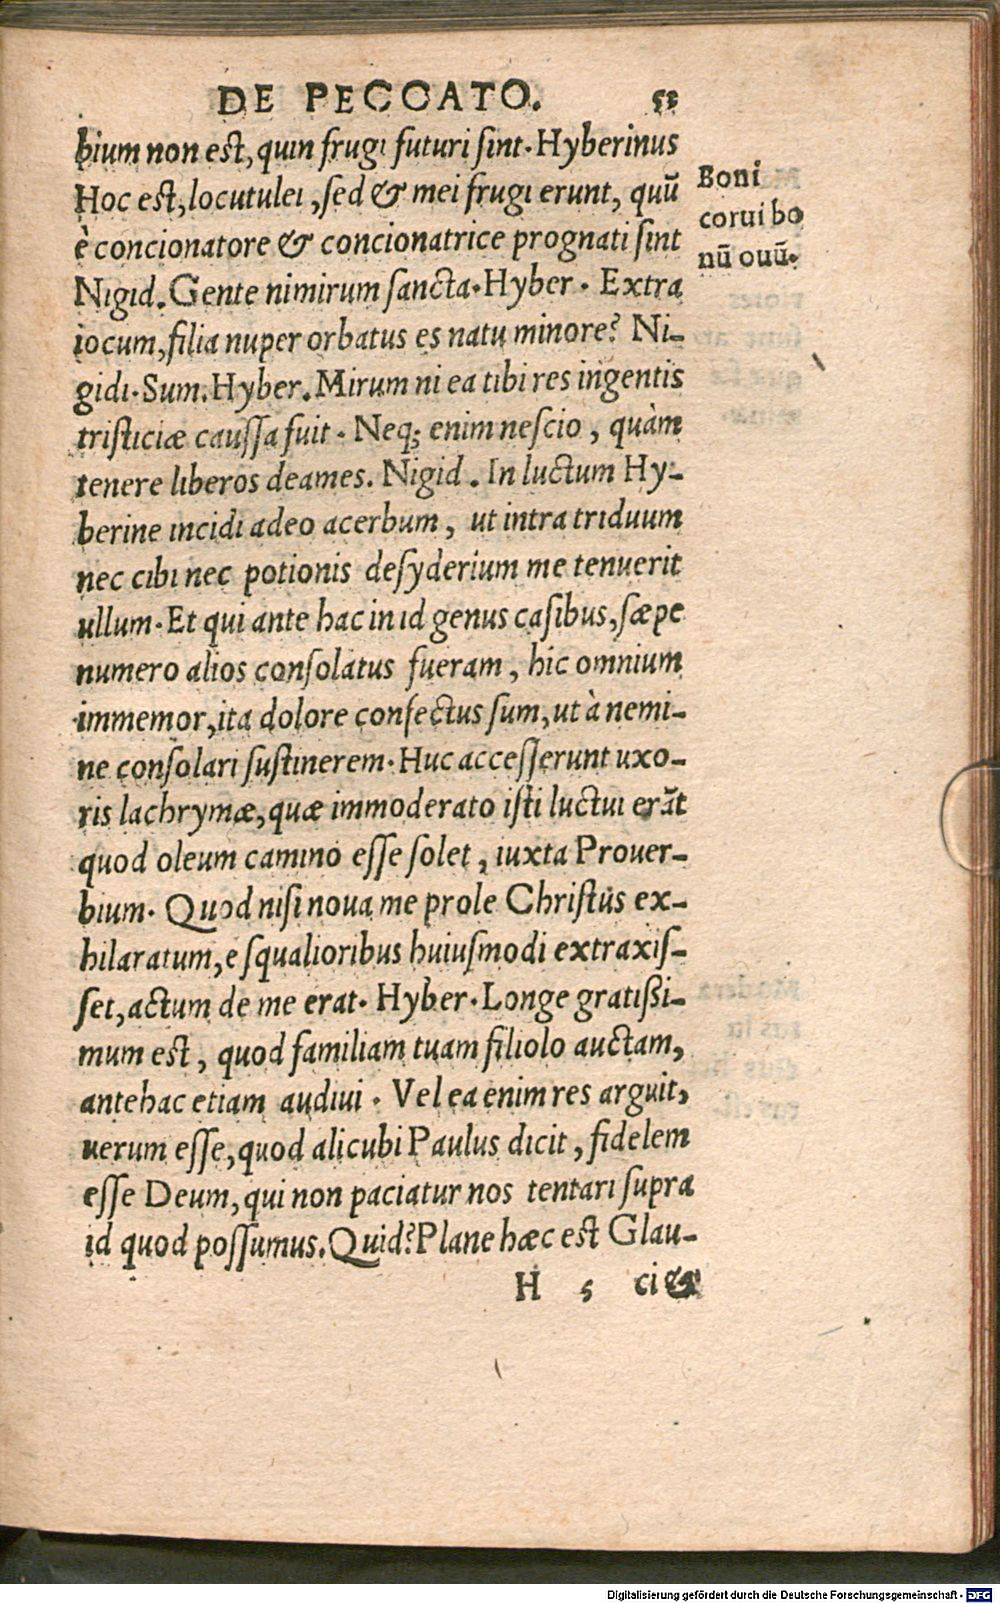 DE PECCATO. 53
bium non est, quin frugi futuri sint. Hyberinus
Hoc est, locutulei, sed & mei frugi erunt, quū
è concionatore & concionatrice prognati sint
Nigid. Gente nimirum sancta. Hyber. Extra
iocum, filia nuper orbatus es natu minore? Ni-
gidi. Sum. Hyber. Mirum ni ea tibi res ingentis
tristiciæ caussa fuit. Neq; enim nescio, quàm
tenere liberos deames. Nigid. In luctum Hy-
berine incidi adeo acerbum, ut intra triduum
nec cibi nec potionis desyderium me tenuerit
ullum. Et qui ante hac in id genus casibus, sæpe
numero alios consolatus fueram, hic omnium
immemor, ita dolore confectus sum, ut à nemi-
ne consolari sustinerem. Huc accesserunt uxo-
ris lachrymæ, quæ immoderato isti luctui erāt
quod oleum camino esse solet, iuxta Prouer-
bium. Quod nisi noua me prole Christus ex-
hilaratum, e squalioribus huiusmodi extraxis-
set, actum de me erat. Hyber. Longe gratißi-
mum est, quod familiam tuam filiolo auctam,
antehac etiam audiui. Vel ea enim res arguit,
uerum esse, quod alicubi Paulus dicit, fidelem
esse Deum, qui non paciatur nos tentari supra
id quod possumus. Quid? Plane hæc est Glau-
H 5 ci &
Boni
corui bo
nū ouū.
Digitalisierung gefördert durch die Deutsche Forschungsgemeinschaft - DFG